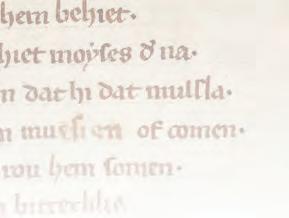 hem behiet.
hiet moyses ð na.
n dat hi dat mulsla.
of comen.
rou hem somen.
bitterchlic